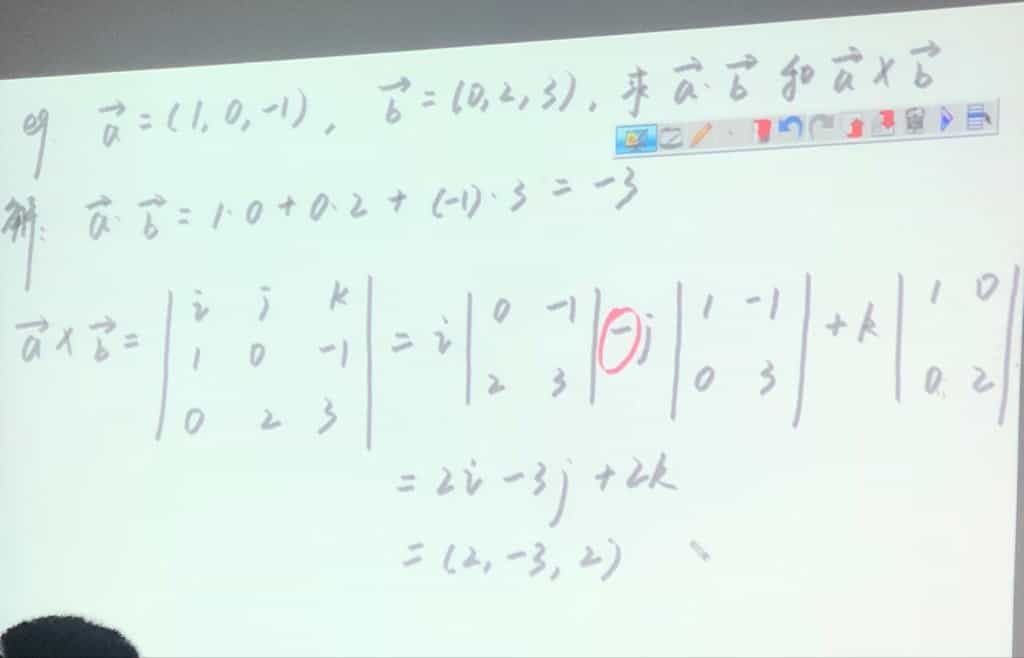 eg $\vec{a} = (1, 0, -1)$, $\vec{b} = (0, 2, 3)$, 求 $\vec{a} \cdot \vec{b}$ 和 $\vec{a} \times \vec{b}$
解: $\vec{a} \cdot \vec{b} = 1 \cdot 0 + 0 \cdot 2 + (-1) \cdot 3 = -3$
$\vec{a} \times \vec{b} = \begin{vmatrix} i & j & k \\ 1 & 0 & -1 \\ 0 & 2 & 3 \end{vmatrix} = i \begin{vmatrix} 0 & -1 \\ 2 & 3 \end{vmatrix} - j \begin{vmatrix} 1 & -1 \\ 0 & 3 \end{vmatrix} + k \begin{vmatrix} 1 & 0 \\ 0 & 2 \end{vmatrix}$
$= 2i - 3j + 2k$
$= (2, -3, 2)$